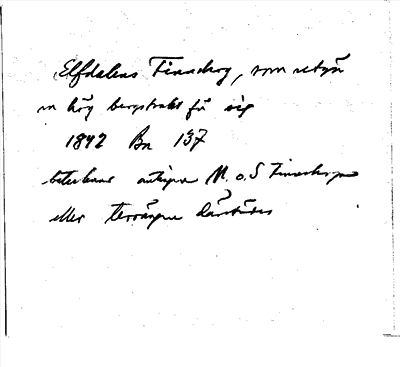 Elfdalens Finnskog, som utgör
en hög bergstrakt för sig
1842 Bn 137
betecknar antingen N. o. S Finnskogen
eller terrängen därstädes